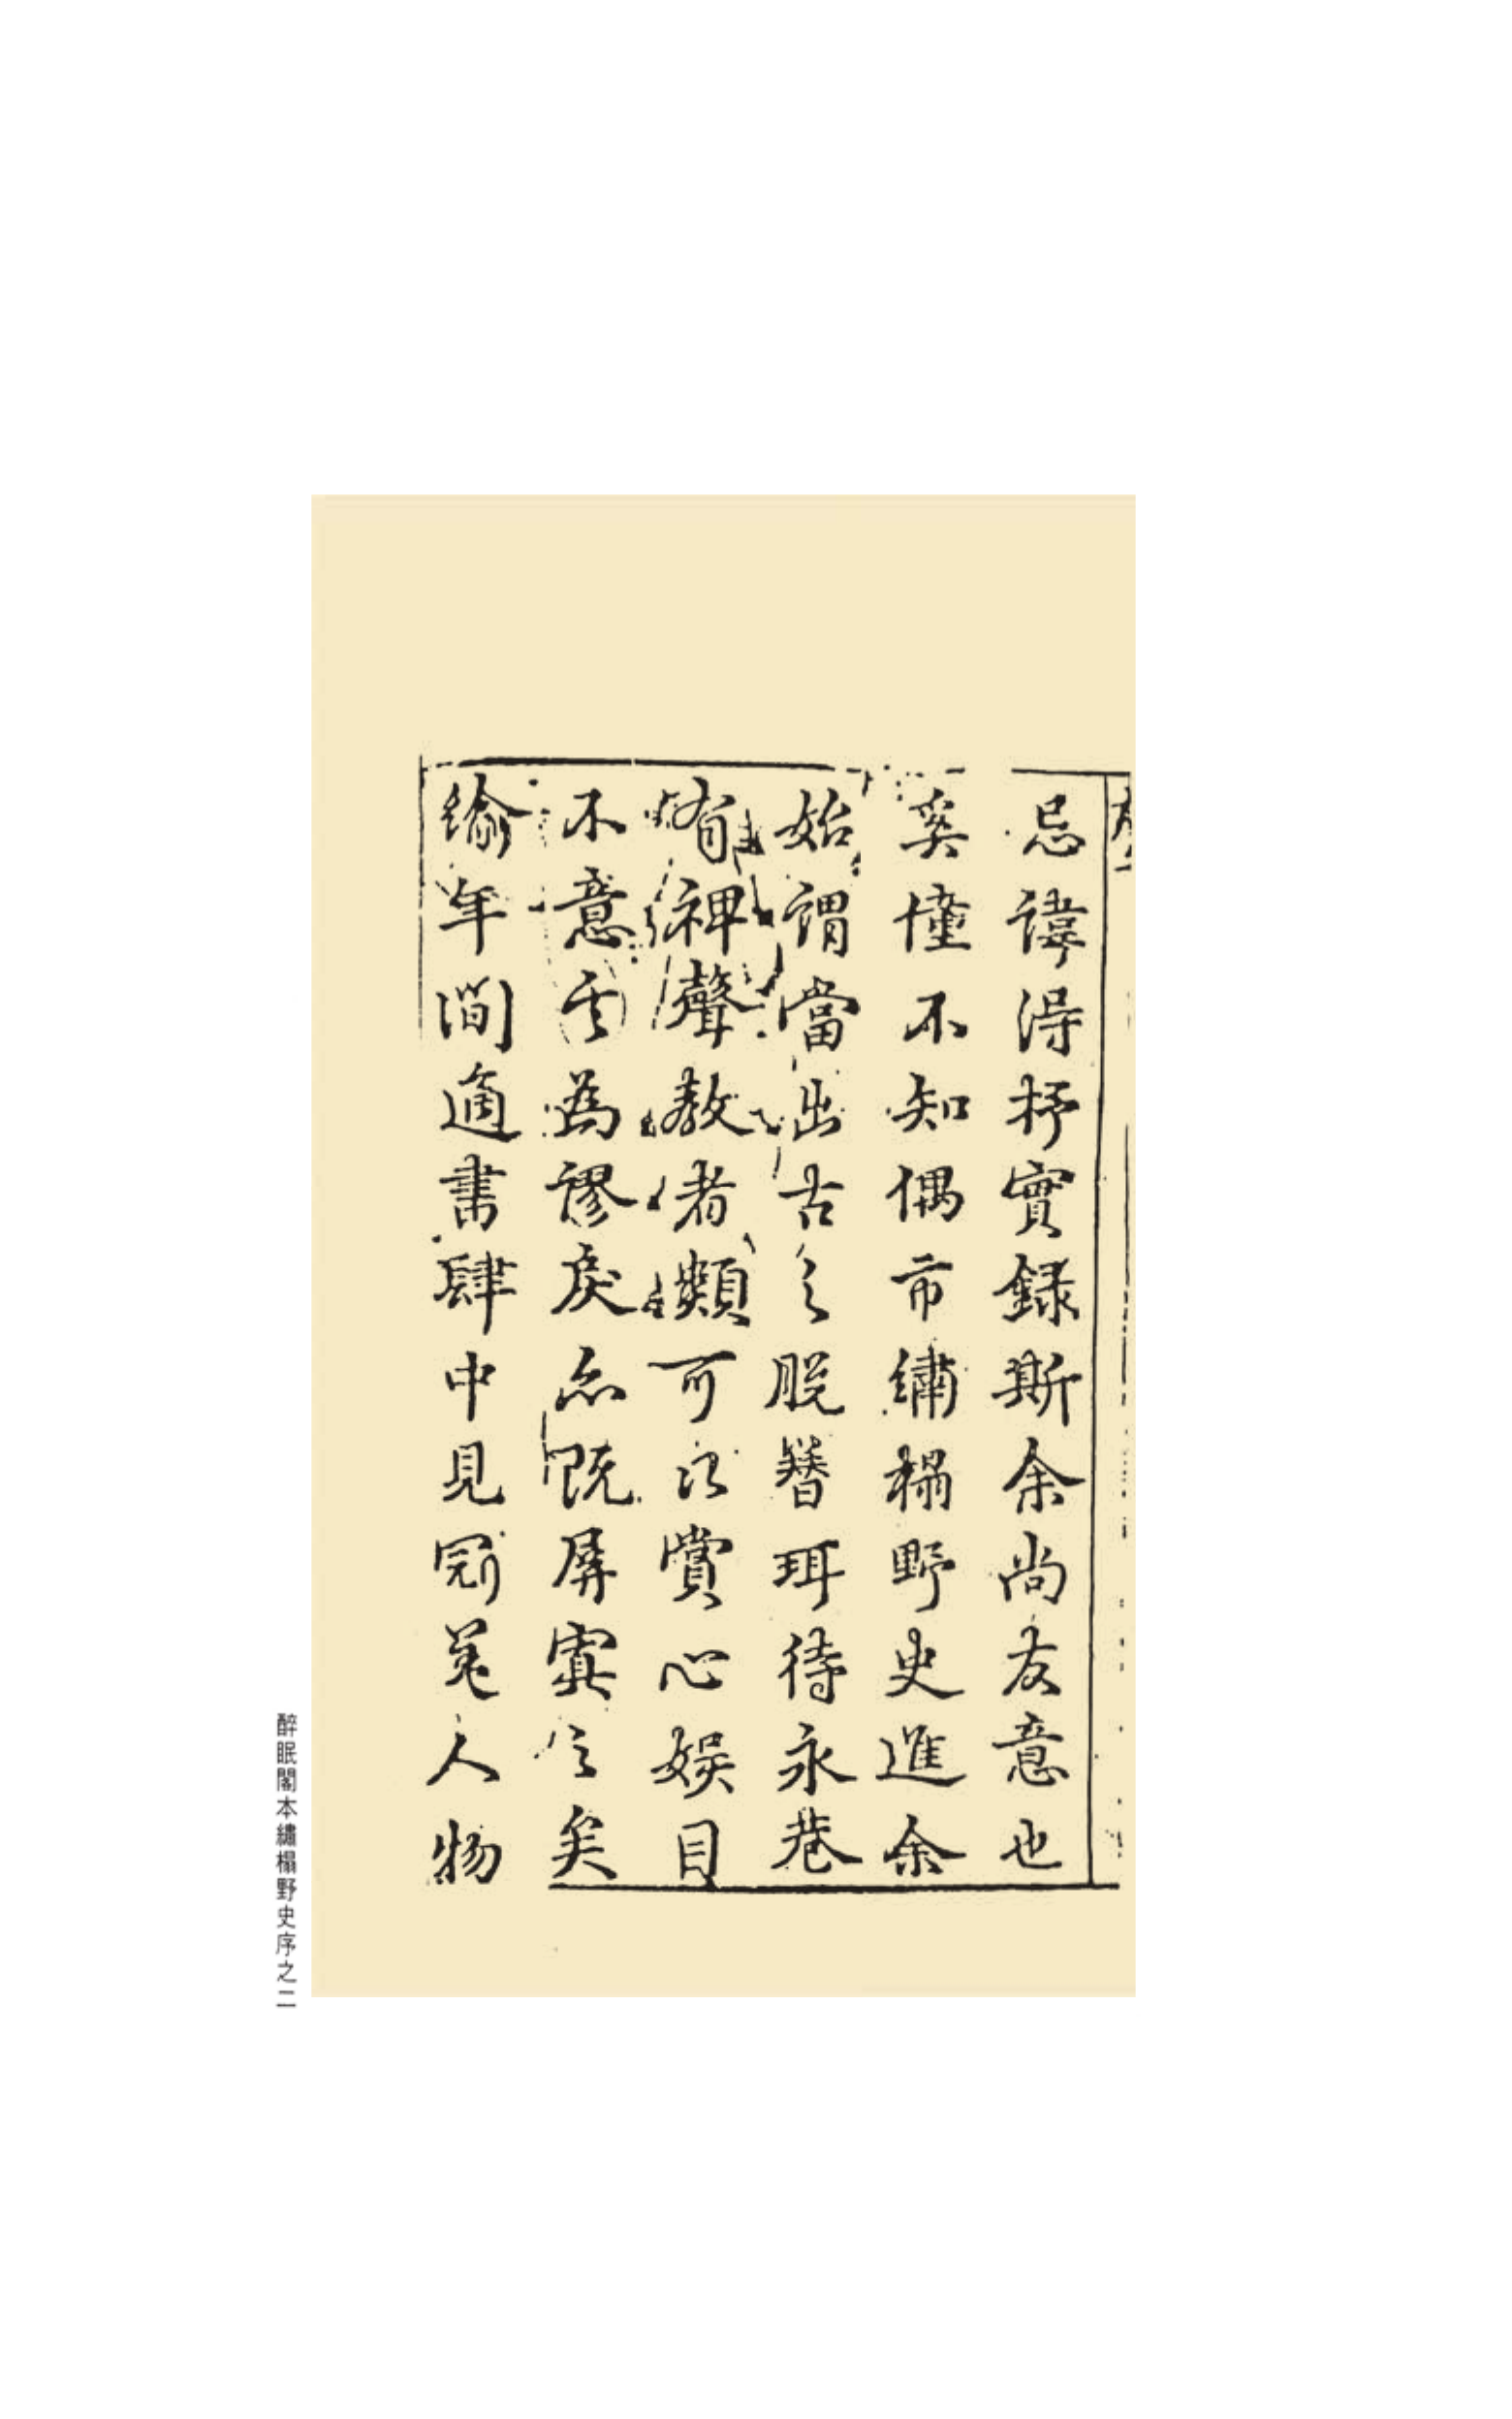 忌諱得抒實録斯余尚友意也
奚僮不知偶市繡榻野史進余
始謂當出古之脱簪珥待永巷
有裨聲教者類可以賞心娛目
不意其為謬戾亦既屏寘之矣
逾年間適書肆中見冠冕人物
醉眠閣本繡榻野史序之二